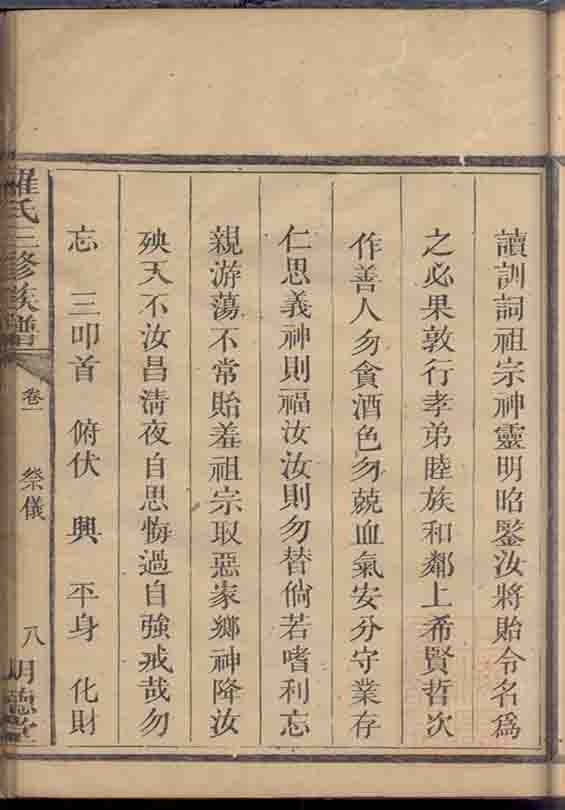 讀訓詞祖宗神靈明昭鑒汝將貽令名為
之必果敦行孝弟睦族和鄰上希賢哲次
作善人勿貪酒色勿競血氣安分守業存
仁思義神則福汝汝則勿替倘若嗜利忘
親游蕩不常貽羞祖宗取惡家鄉神降汝
殃天不汝昌淸夜自思悔過自強戒哉勿
忘 三叩首 俯伏 興 平身 化財
羅氏三修族譜 卷一 祭儀 八 明德堂